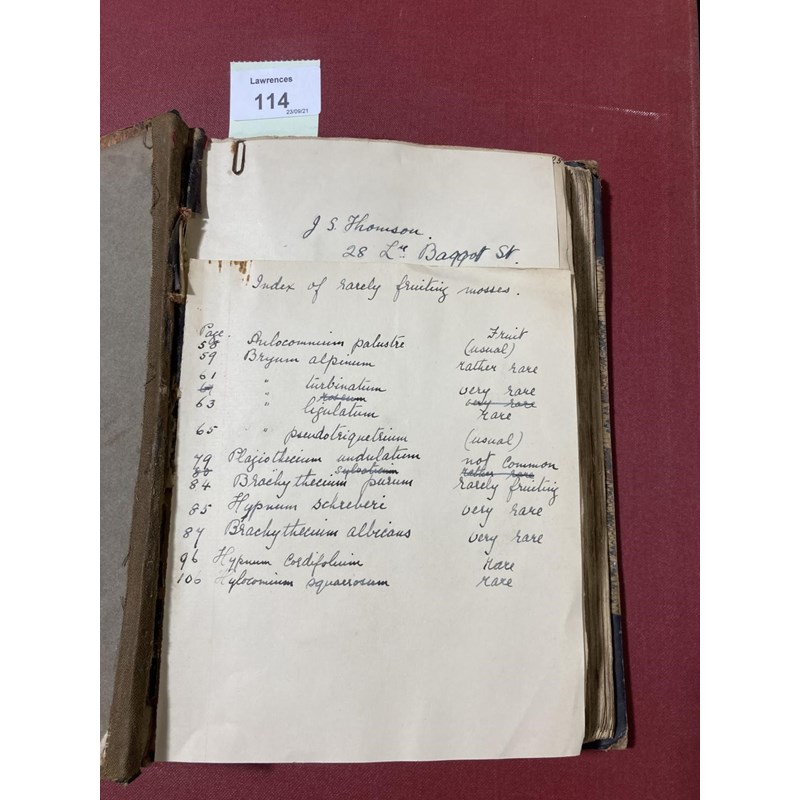 Lawrences
114
23/09/21
J S. Thomson.
28 Lr Baggot St.
Index of rarely fruiting mosses.
Page. Fruit
58 Aulocomnium palustre (usual)
59 Bryum alpinum rather rare
61 " turbinatum very rare
" roseum very rare
63 " ligulatum rare
65 " pseudotriquetrium (usual)
79 Plagiothecium undulatum not common
80 sylvaticum rather rare
84 Brachythecium purum rarely fruiting
85 Hypnum schreberi very rare
87 Brachythecium albicans very rare
96 Hypnum cordifolium Rare
106 Hylocomium squarrosum rare